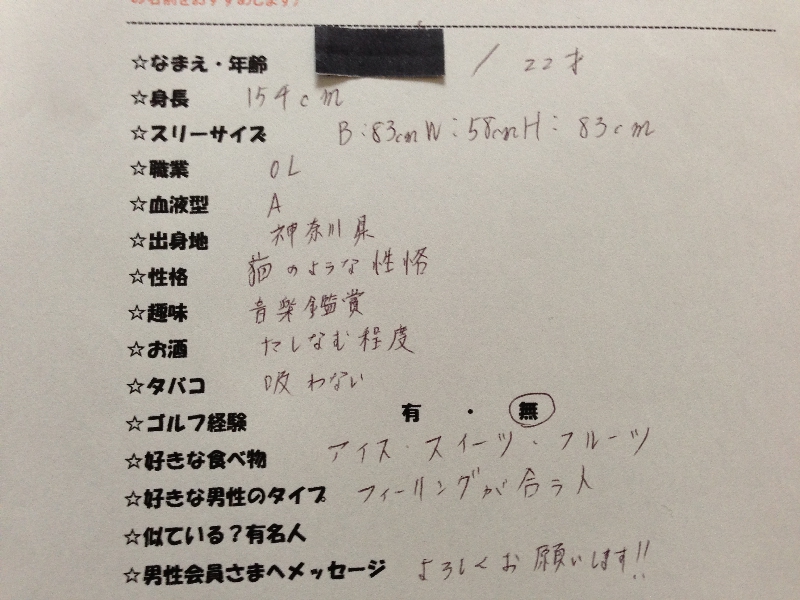 お名前をおすすめします）
☆なまえ・年齢 / 22才
☆身長 154cm
☆スリーサイズ B:83cm W:58cm H:83cm
☆職業 OL
☆血液型 A
☆出身地 神奈川県
☆性格 猫のような性格
☆趣味 音楽鑑賞
☆お酒 たしなむ程度
☆タバコ 吸わない
☆ゴルフ経験 有・無
☆好きな食べ物 アイス・スイーツ・フルーツ
☆好きな男性のタイプ フィーリングが合う人
☆似ている？有名人
☆男性会員さまへメッセージ よろしくお願いします!!